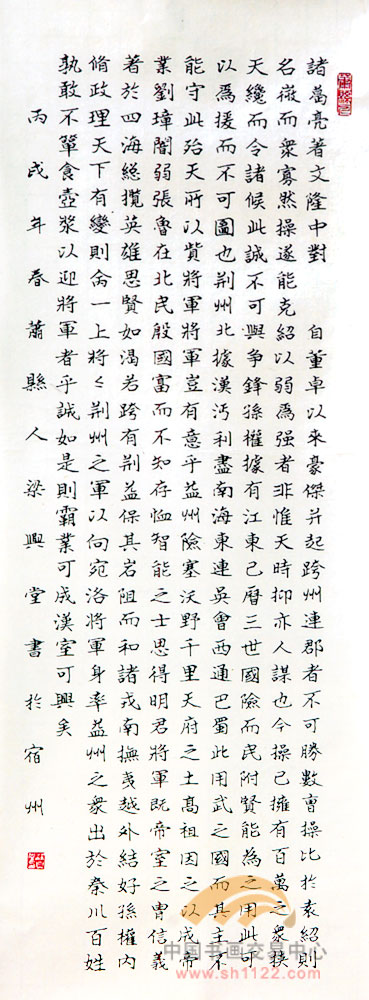 諸葛亮著文隆中對 自董卓以來豪傑并起跨州連郡者不可勝數曹操比於袁紹則
名微而衆寡然操遂能克紹以弱為强者非惟天時抑亦人謀也今操已擁有百萬之衆挾
天纔而令諸候此誠不可與争鋒孫權據有江東已曆三世國險而民附賢能為之用此可
以為援而不可圖也荆州北據漢沔利盡南海東連吳會西通巴蜀此用武之國而其主不
能守此殆天所以貲將軍將軍豈有意乎益州險塞沃野千里天府之土高祖因之以成帝
業劉璋闇弱張魯在北民殷國富而不知存恤智能之士思得明君將軍既帝室之胄信義
著於四海緫攬英雄思賢如渴若跨有荆益保其岩阻而和諸戎南撫夷越外結好孫權内
脩政理天下有變則命一上將々荆州之軍以向宛洛將軍身率益州之衆出於秦川百姓
孰敢不簞食壺漿以迎將軍者乎誠如是則霸業可成漢室可興矣
丙戌年春蕭縣人梁興堂書於宿州
中国书画交易中心
www.sh1122.com